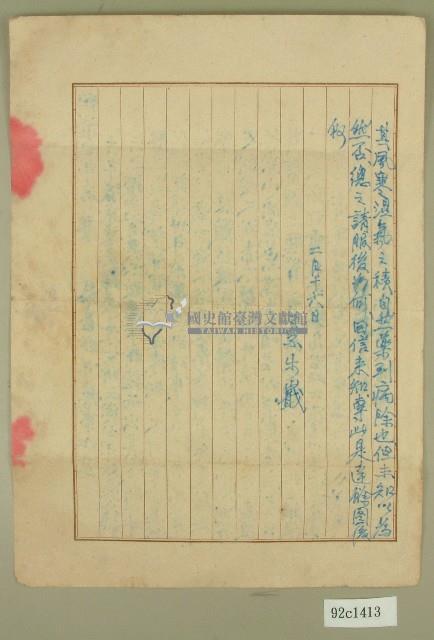 其風寒濕氣之積自然藥到病除也但未知以為
然否總之請服後如何回信來知專此是達祈圖後
敘
二月十六日
國史館臺灣文獻館
TAIWAN HISTORICA
92c1413